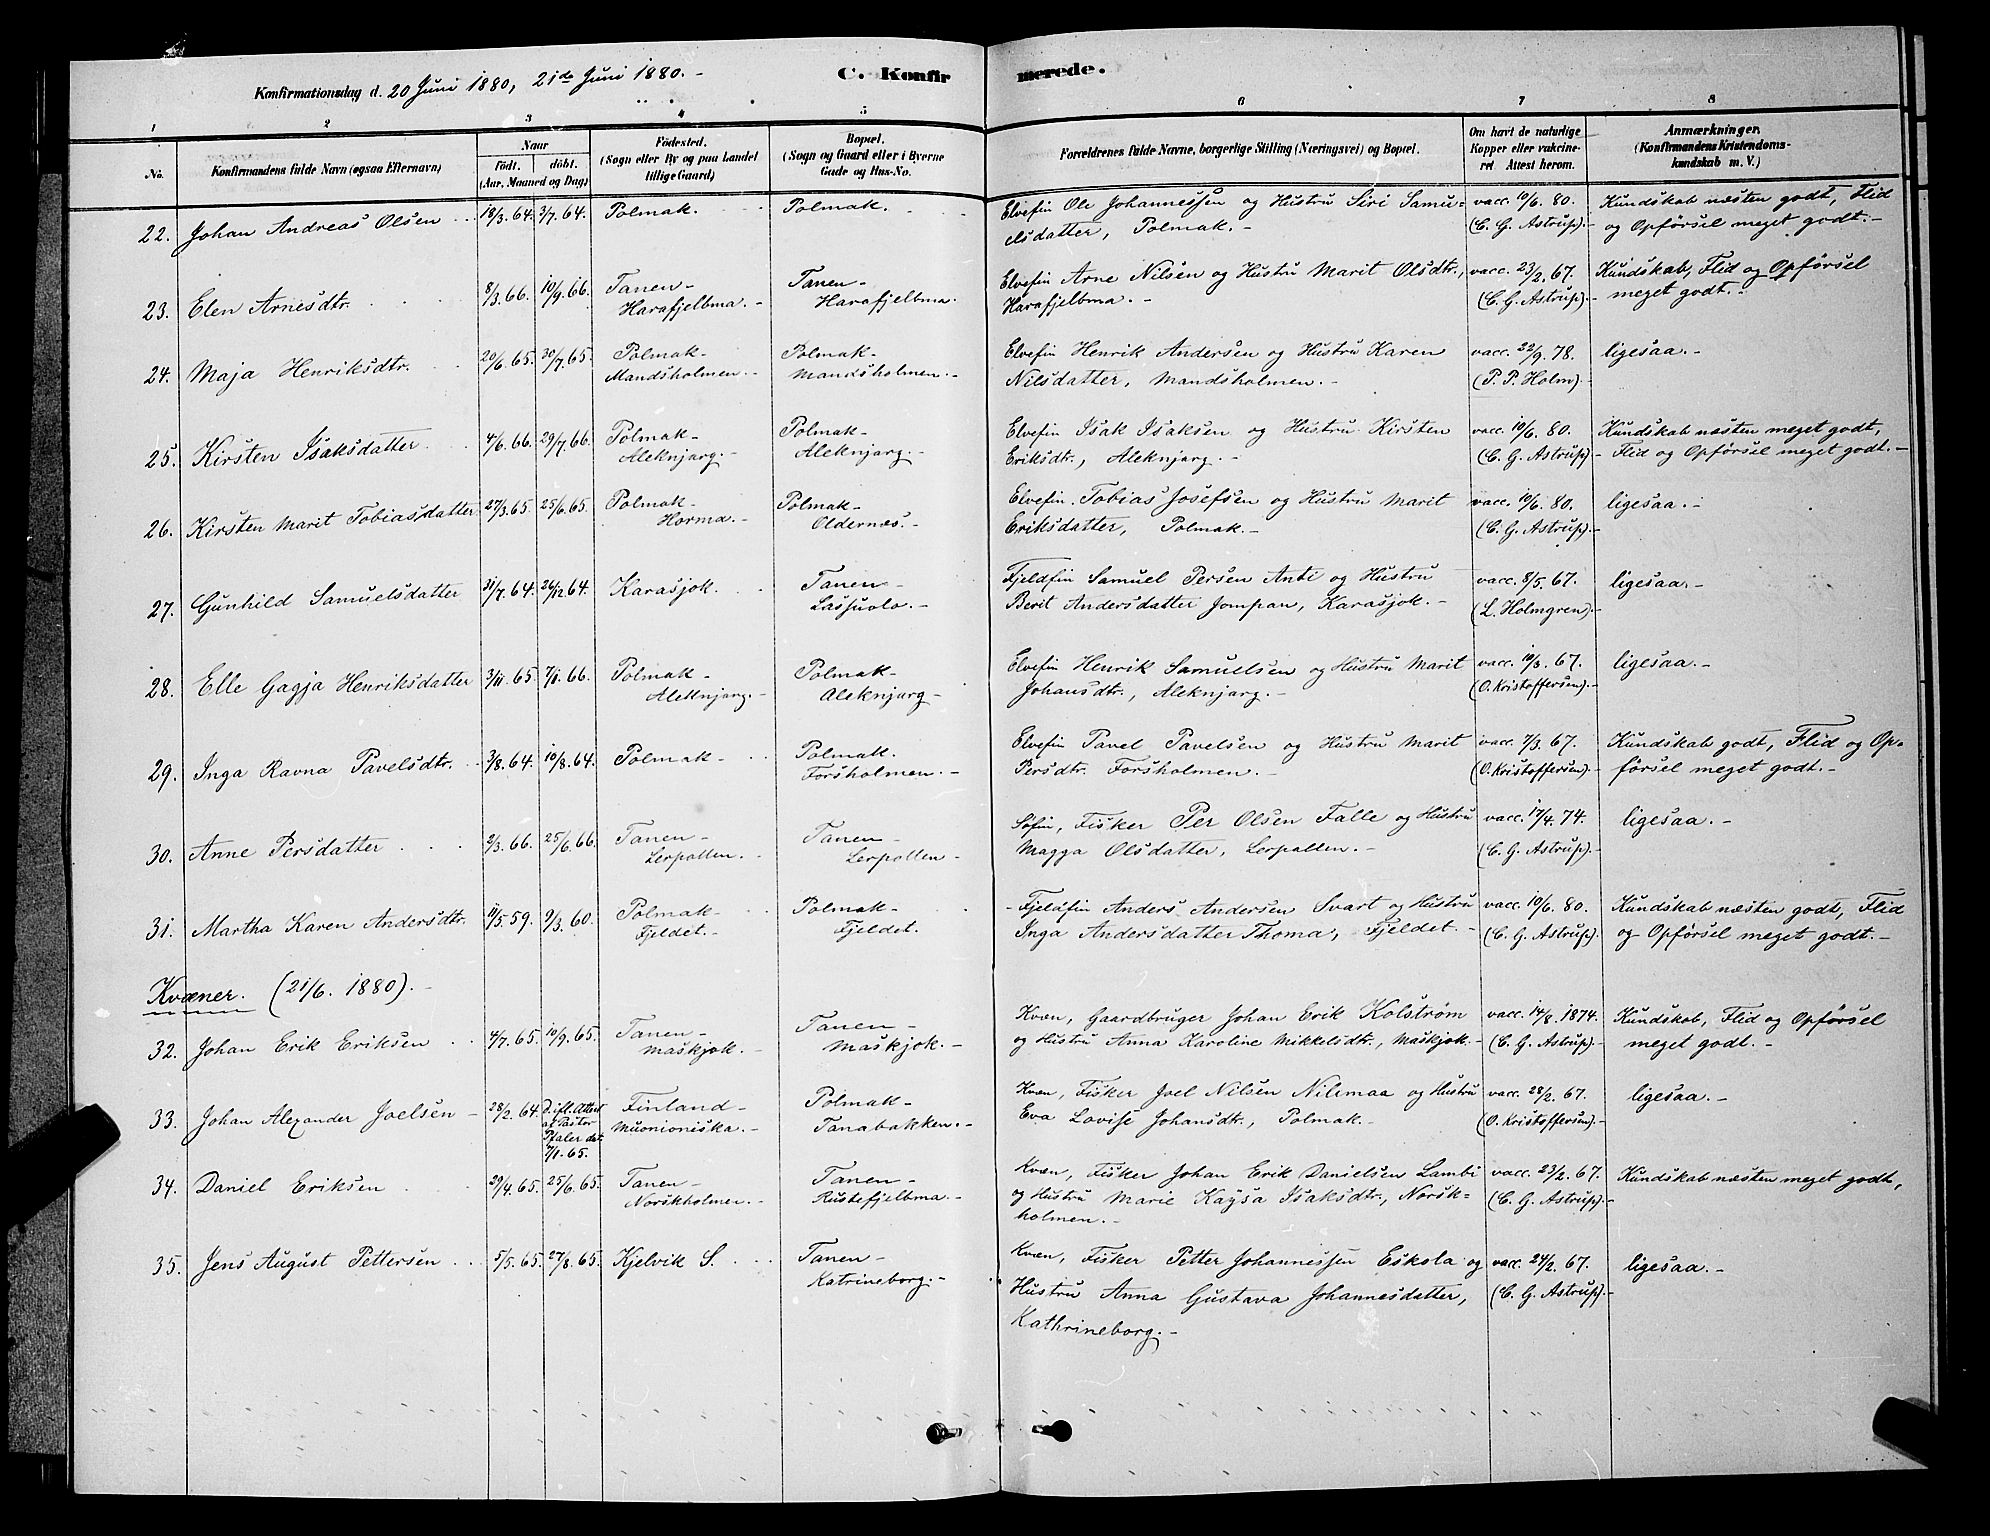 Konfirmationsdag d. 20 Juni 1880, 21de Juni 1880. – C. Konfirmerede.
1 2 3 4 5 6 7 8
No. Konfirmandens fulde Navn (ogsaa Efternavn) Naar Födt. döbt. (Aar, Maaned og Dag) Födested. (Sogn eller By og paa Landet tillige Gaard) Bopæl. (Sogn og Gaard eller i Byerne Gade og Hus-No. Forældrenes fulde Navne, borgerlige Stilling (Næringsvei) og Bopæl. Om havt de naturlige Kopper eller vakcineret Attest herom. Anmærkninger. (Konfirmandens Kristendomskundskab m. V.)
22. Johan Andreas Olsen 18/3.64. 3/7.64. Polmak. Polmak. Elvefin Ole Johannessen og Hustru Siri Samu- vacc. 10/6. 80. Kundskab næsten godt, Flid
elsdatter, Polmak. – (C. G. Astrup). – og Opførsel meget godt. –
23. Elen Arnesdtr. 8/3.66. 10/9.66. Tanen- Tanen- Elvefin Arne Nilsen og Hustru Marit Olsdtr., vacc. 23/2. 67. Kundskab, Flid og Opførsel
Harafjelbma. – Harafjelbma. Harafjelbma. – (C. G. Astrup). – meget godt. –
24. Maja Henriksdtr. 20/6.65. 30/7.65. Polmak- Polmak- Elvefin Henrik Andersen og Hustru Karen vacc. 22/9. 78. ligesaa. –
Mandsholmen. – Mandsholmen. – Nilsdatter, Mandsholmen. – (P. P. Holm). –
25. Kirsten Isaksdatter 4/6.66. 29/7.66. Polmak- Polmak- Elvefin Isak Isaksen og Hustru Kirsten vacc. 10/6. 80. Kundskab næsten meget godt,
Aleknjarg. – Aleknjarg. – Eriksdtr., Aleknjarg. – (C. G. Astrup) – Flid og Opførsel meget godt. –
26. Kirsten Marit Tobiasdatter 27/3.65. 25/6.65. Polmak- Polmak- Elvefin Tobias Josefsen og Hustru Marit vacc. 10/6. 80. ligesaa. –
Horma. – Oldernæs. – Eriksdatter, Polmak. – (C. G. Astrup). –
27. Gunhild Samuelsdatter 31/7.64. 26/12.64. Karasjok. Tanen- Fjeldfin Samuel Persen Anti og Hustru vacc. 8/5. 67. ligesaa. –
Berit Andersdatter Jompan, Karasjok. – (L. Holmgren). –
28. Elle Gagja Henriksdatter 3/11.65. 7/1.66. Polmak- Polmak- Elvefin Henrik Samuelsen og Hustru Marit vacc. 10/3. 67. ligesaa. –
Aleknjarg. – Aleknjarg – Johansdtr., Aleknjarg. – (O. Kristoffersen). –
29. Inga Ravna Pavelsdtr. 3/8.64. 10/8.64. Polmak- Polmak. Elvefin Pavel Pavelsen og Hustru Marit vacc. 7/3. 67. Kundskab godt, Flid og Op-
Forsholmen. – Persdtr. Forsholmen. – (O. Kristoffersen). – førsel meget godt. –
30. Anne Persdatter 2/3.66. 25/6.66. Tanen- Tanen- Søfin, Fisker Per Olsen Falle og Hustru vacc. 17/4. 74. ligesaa. –
Lerpollen. – Lerpollen – Magga Olsdatter, Lerpollen. – (C. G. Astrup) –
31. Martha Karen Andersdtr. 11/5.59. 9/3.60. Polmak- Polmak- Fjeldfin Anders Andersen Svart og Hustru vacc. 10/6. 80. Kundskab næsten godt, Flid
Fjeldet. – Fjeldet. Inga Andersdatter Thoma, Fjeldet. – (C. G. Astrup). og Opførsel meget godt. –
Kvæner. (21/6. 1880). –
32. Johan Erik Eriksen 4/7.65. 10/9.65. Tanen- Tanen- Kvæn, Gaardbruger Johan Erik Kolstrøm vacc. 14/8. 1874. Kundskab, Flid og Opførsel
Maskjok. – Maskjok. – og Hustru Anna Karoline Mikkelsdtr., Maskjok. – (C. G. Astrup) – meget godt. –
33. Johan Alexander Joelsen – 28/2.64. D. ifl. Attest af Pastor Pfaler dat. 7/1.65. Finland- Polmak- Kvæn, Fisker Joel Nilsen Nilimaa og Hustru vacc. 28/2. 67. ligesaa. –
Muonioniska. Tanabakken. – Eva Lovise Johansdtr., Polmak. – (O. Kristoffersen)
34. Daniel Eriksen 29/4.65. 25/6.65. Tanen- Tanen- Kvæn, Fisker Johan Erik Danielsen Lambi vacc. 23/2. 67. Kundskab næsten meget godt,
Norskholmen. – Rustefjelbma. – og Hustru Marie Kaysa Isaksdtr., Norsk- (C. G. Astrup). –
holmen. –
35. Jens August Pettersen 5/5.65. 27/8.65. Kjelvik S. Tanen- Kvæn, Fisker Petter Johannessen Eskola og vacc. 24/2. 67. ligesaa. –
Katrineborg. – Hustru Anna Gustava Johannesdatter, (C. G. Astrup). –
Kathrineborg. –